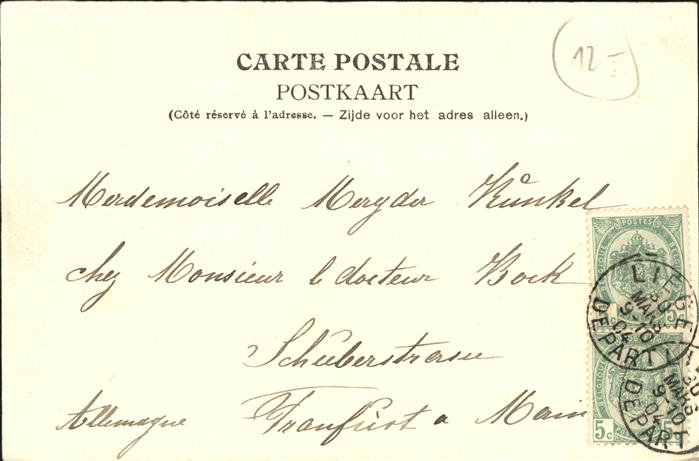 12
CARTE POSTALE
POSTKAART
(Côté réservé à l'adresse. — Zijde voor het adres alleen.)
Mademoiselle Magda Künkel
chez Monsieur le docteur Bock
Schuberstrasse
Allemagne Francfurt a Main
POSTES
BELGIQUE
LIEGE
30
MARS
9-10
04
DEPART
5
BELGIQUE
5c
5
30
MARS
9-10
04
DEPART